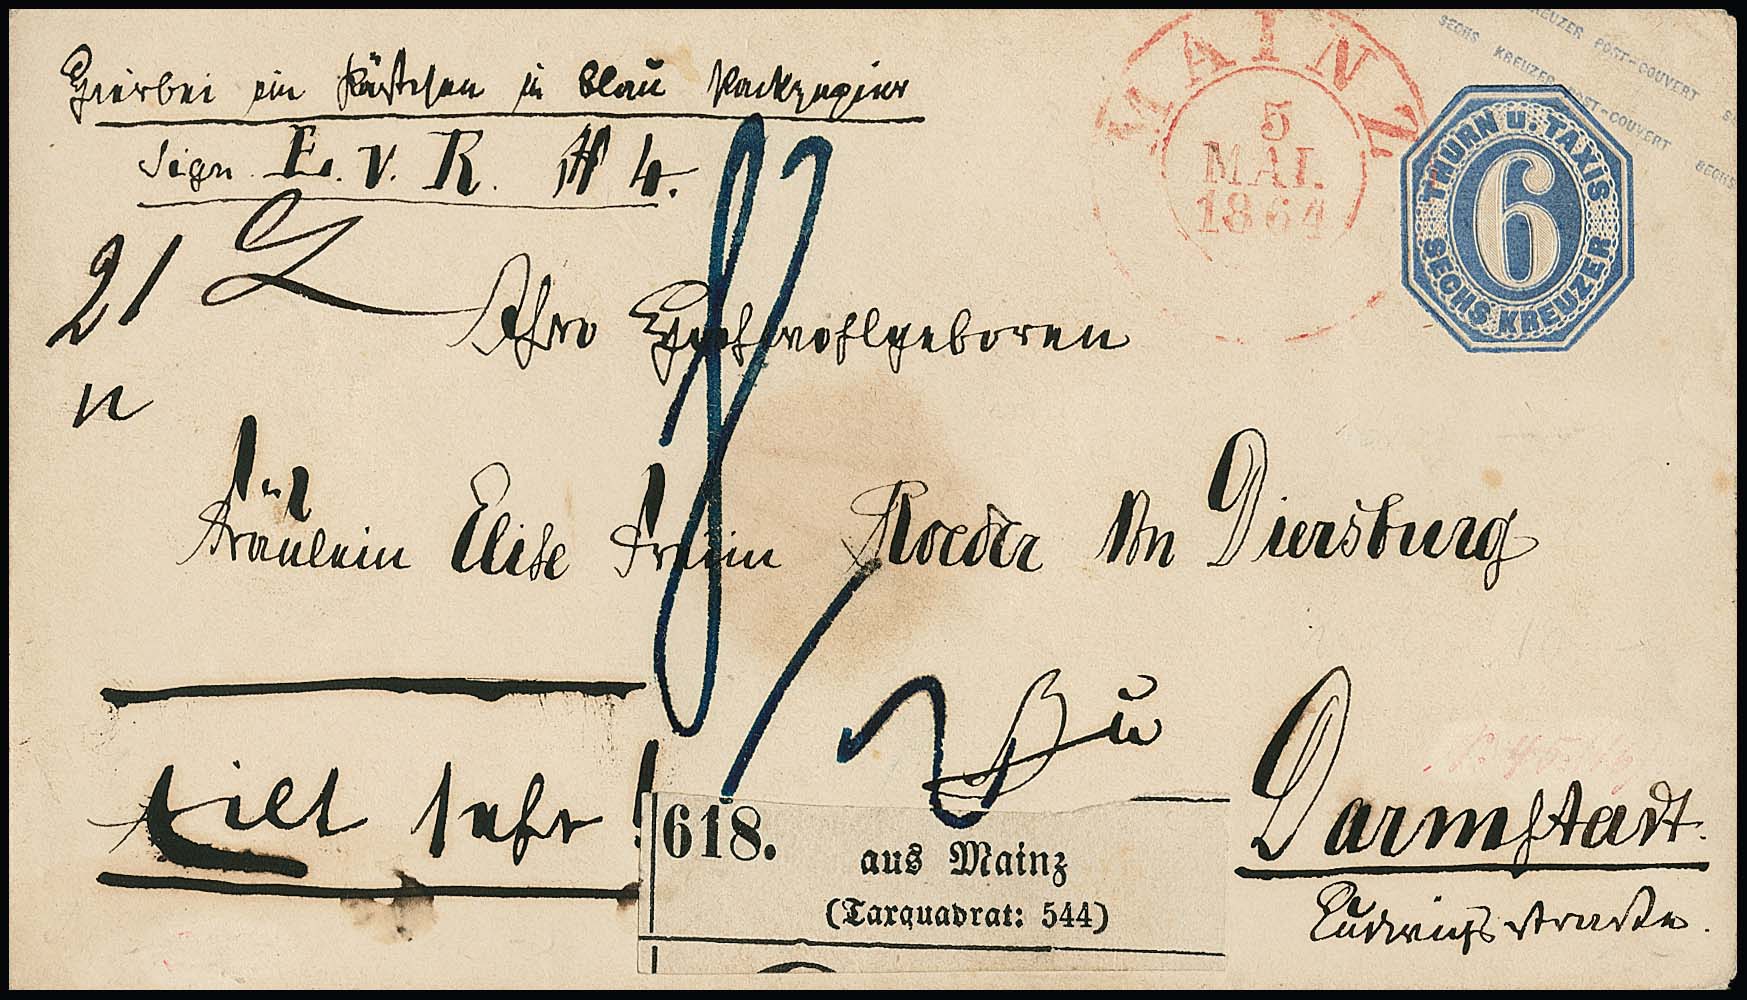 Hierbei ein Kästchen in blau Packpapier
sign. E. v. R. # 4.
MAINZ
5
MAI.
1864
KREUZER POST-COUVERT
SECHS KREUZER POST-COUVERT SECHS
THURN U. TAXIS
6
SECHS KREUZER
21
Ihro Hochwohlgeboren
Fräulein Elise Freiin Roeder von Diersburg
Zu
Darmstadt.
Eilt sehr!
618.
aus Mainz
(Taxquadrat: 544)
Ludwigsstraße.